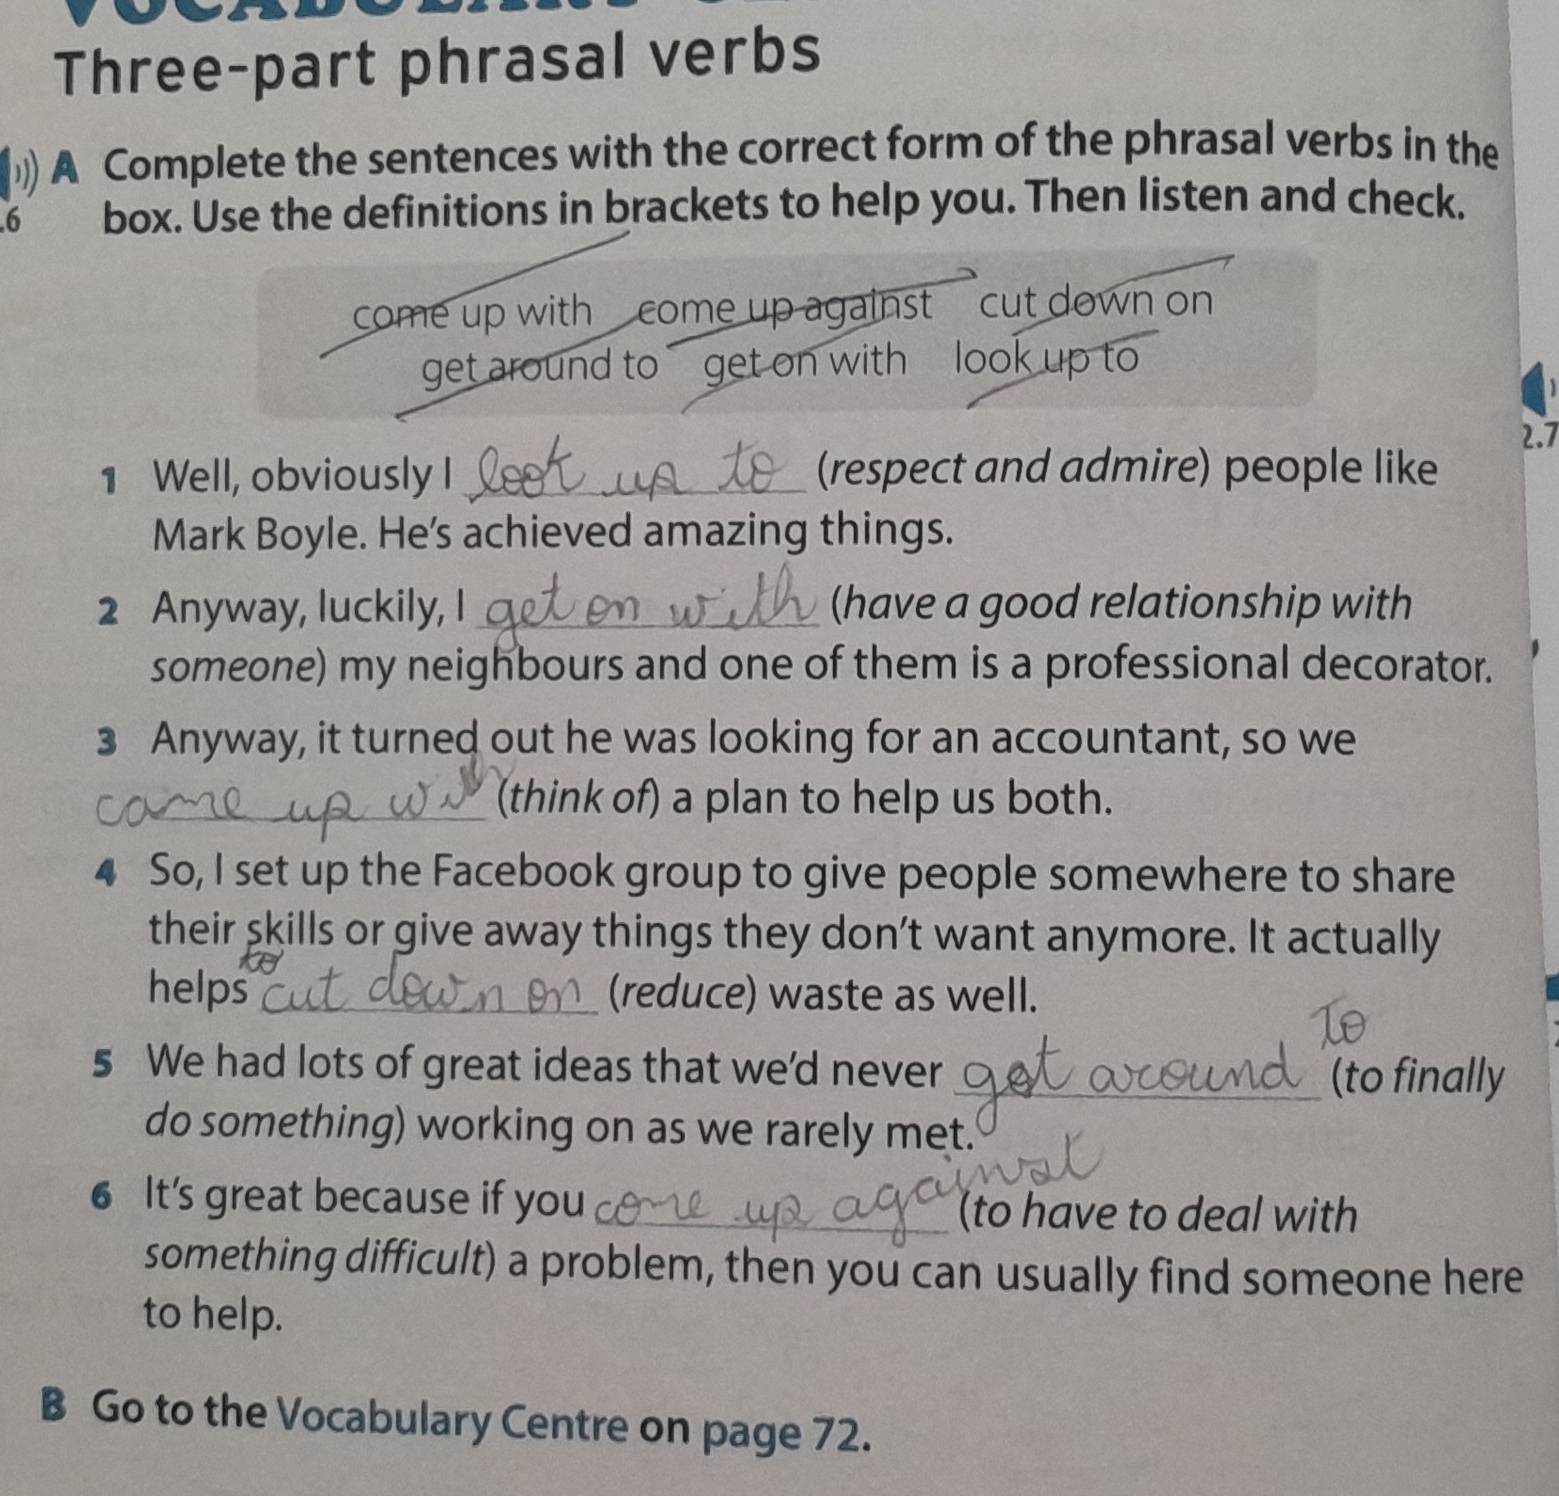 Three-part phrasal verbs
A Complete the sentences with the correct form of the phrasal verbs in the
.6 box. Use the definitions in brackets to help you. Then listen and check.
come up with come up against cut down on
get around to get on with look up to
2.7
1 Well, obviously I look up to (respect and admire) people like
Mark Boyle. He's achieved amazing things.
2 Anyway, luckily, I get on with (have a good relationship with
someone) my neighbours and one of them is a professional decorator.
3 Anyway, it turned out he was looking for an accountant, so we
came up with (think of) a plan to help us both.
4 So, I set up the Facebook group to give people somewhere to share
their skills or give away things they don't want anymore. It actually
to
helps cut down on (reduce) waste as well.
to
5 We had lots of great ideas that we'd never got around (to finally
do something) working on as we rarely met.
6 It's great because if you come up against (to have to deal with
something difficult) a problem, then you can usually find someone here
to help.
B Go to the Vocabulary Centre on page 72.